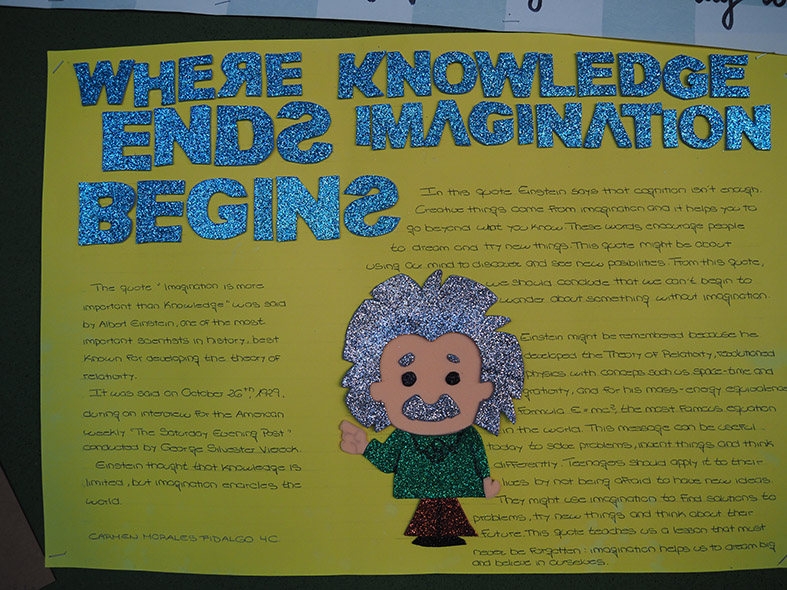 WHERE KNOWLEDGE
ENDS IMAGINATION
BEGINS
In this quote Einstein says that cognition isn't enough.
Creative things come from imagination and it helps you to
go beyond what you know. These words encourage people
to dream and try new things. This quote might be about
using our mind to discover and see new posibilities. From this quote,
we should conclude that we can't begin to
wonder about something without imagination.
The quote "Imagination is more
important than knowledge" was said
by Albert Einstein, one of the most
important scientists in history, best
known for developing the theory of
relativity.
It was said on October 26th, 1929,
during an interview for the American
weekly "The Saturday Evening Post"
conducted by George Silvester Viereck.
Einstein thought that knowledge is
limited, but imagination encircles the
world.
CARMEN MORALES FIDALGO 4C.
Einstein might be remembered because he
developed the Theory of Relativity, revolutioned
physics with concepts such us space-time and
grativity, and for his mass-energy equivalence
formula E=mc², the most famous equation
in the world. This message can be useful
today to solve problems, invent things and think
differently. Teenagers should apply it to their
lives by not being afraid to have new ideas.
They might use imagination to find solutions to
problems, try new things and think about their
future. This quote teaches us a lesson that must
never be forgotten: imagination helps us to dream big
and believe in ourselves.